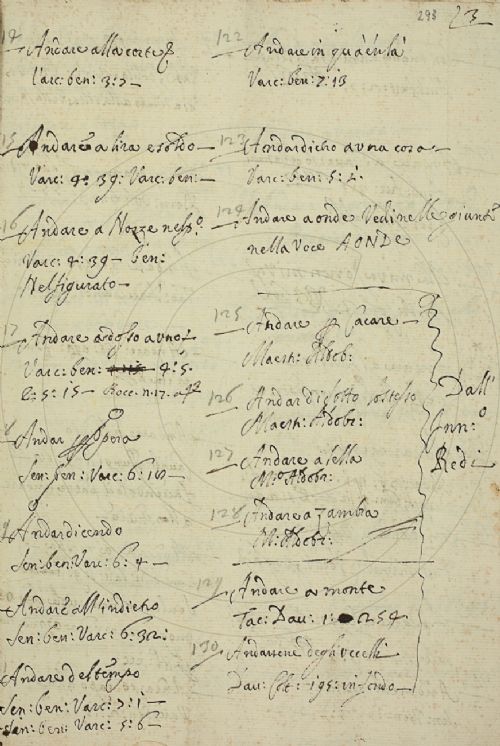 298 23
Andare alla corte
Varc: ben: 3: 2 –
Andare a lira e soldo
Varc: 4: 39: Varc: ben: –
Andare a Nozze nel sp:º
Varc: 4: 39 – ben:
Nel figurato –
Andare adosso a uno
Varc: ben: 4: 5.
6: 5: 15 – Bocc: n: 17:
Andar Opera
Sen: ben: Varc: 6:
Andar dicendo
Sen: ben: Varc: 6: 4 –
Andare all'indietro
Sen: ben: Varc: 6: 32:
Andare del tempo
Sen: ben: Varc: 7: 1 –
Sen: ben: Varc: 5: 6 –
122 Andare in qua e in la
Varc: ben: 7: 13
123 Andar dietro a una cosa –
Varc: ben: 5:
124 Andare a onde Vedi nelle giunte
nella Voce AONDE
125 Andare Cacare –
Maest: Aldob:
126 Andar di sotto
Maest: Aldobr:
127 Andare a sella
M:º Aldobr:
128 Andare a Zambra
M: Aldobr:
Dall'
Inn:º
Redi
129 Andare a monte
Tac: Dav: 1: 254
130 Andarsene degli uccelli
Dav: Colt: 195: in fondo –